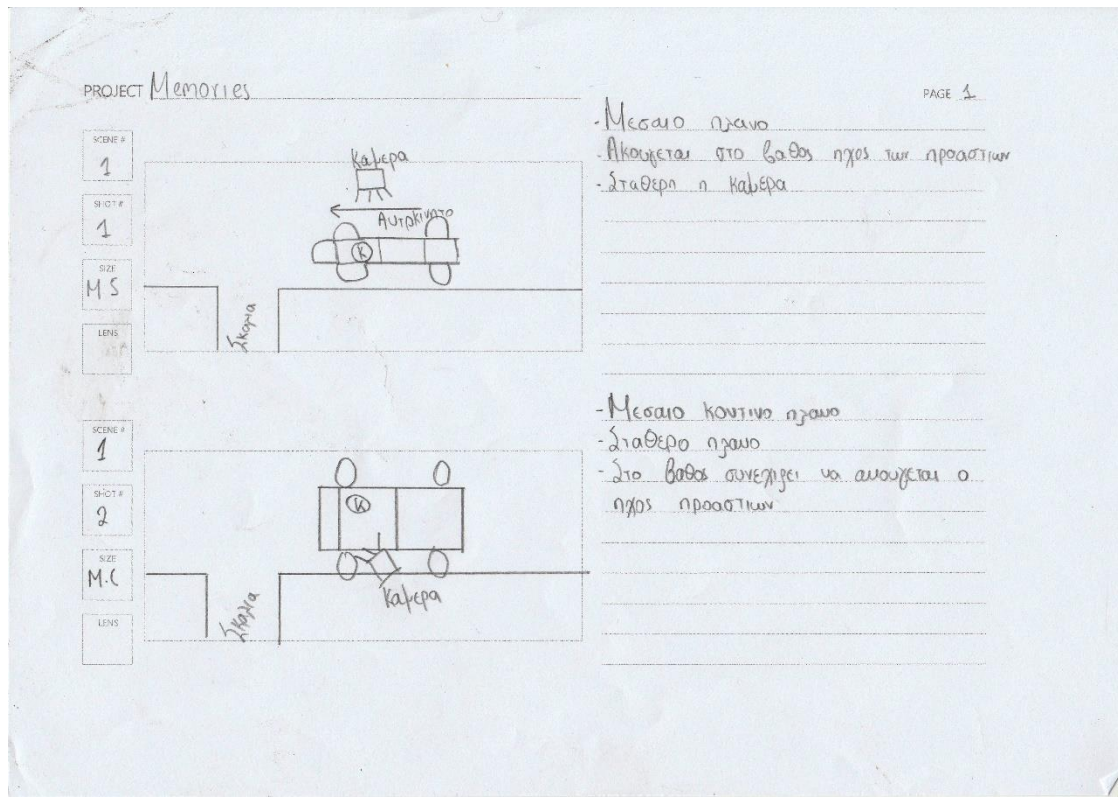 PROJECT Memories
PAGE 1
SCENE #
1
SHOT #
1
SIZE
M S
LENS
Καμερα
Αυτοκινητο
Κ
Σκαλια
- Μεσαιο πλανο
- Ακουγεται στο βαθος ηχος των προαστιων
- Σταθερη η καμερα
SCENE #
1
SHOT #
2
SIZE
M.C
LENS
Κ
Καμερα
Σκαλια
- Μεσαιο κοντινο πλανο
- Σταθερο πλανο
- Στο βαθος συνεχιζει να ακουγεται ο
ηχος προαστιων